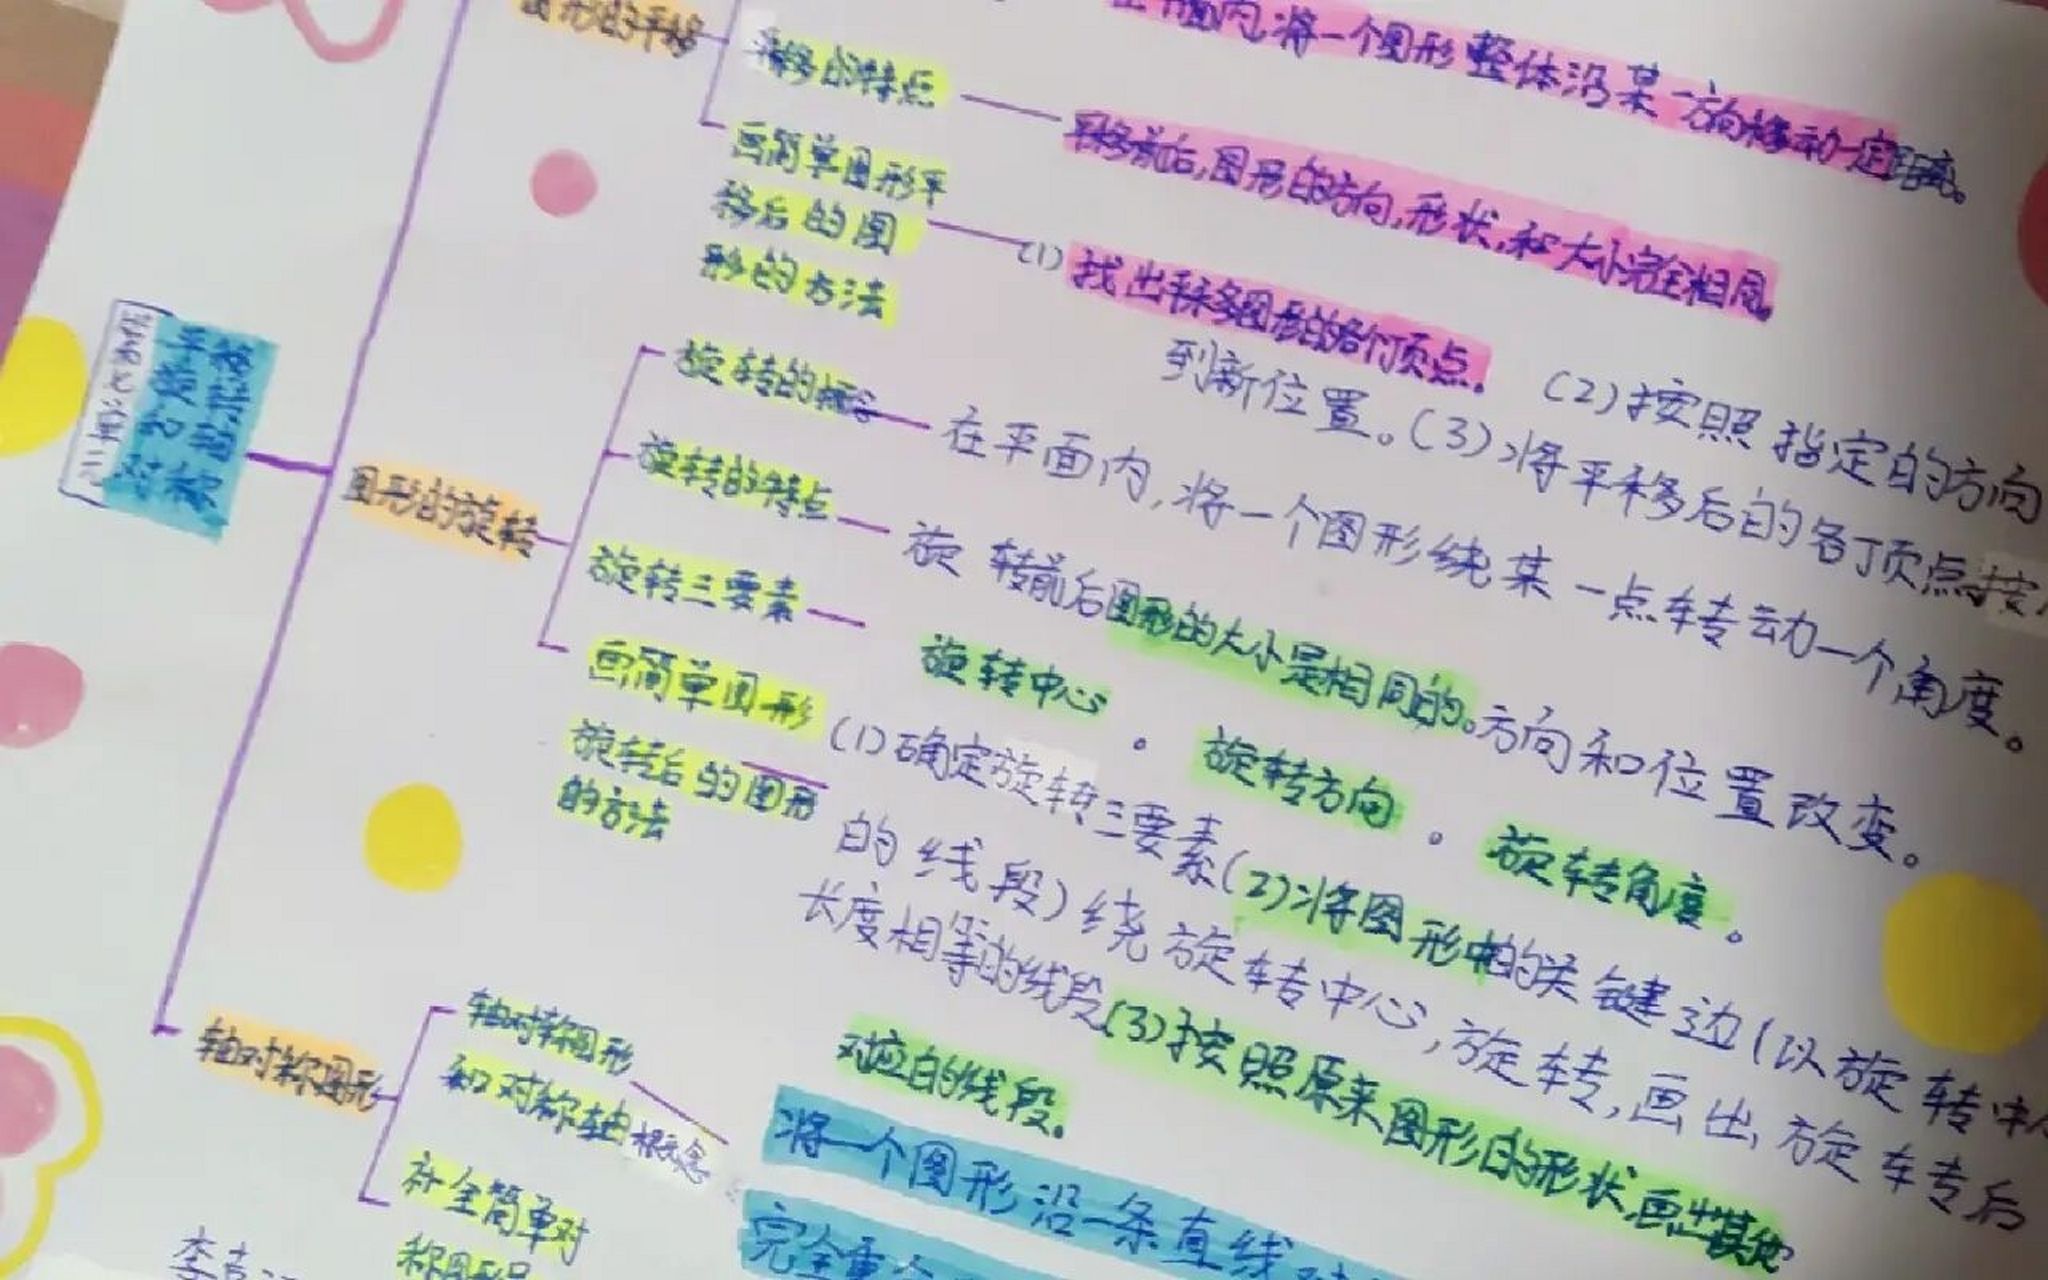 图形的平移
在平面内,将一个图形整体沿某一方向移动一定距离。
平移的特点
平移前后,图形的方向,形状,和大小完全相同。
画简单图形平
移后的图
形的方法
(1)找出平移图形的各个顶点。(2)按照指定的方向
到新位置。(3)将平移后的各丁顶点按
平移
图形的旋转
旋转的概念
在平面内,将一个图形绕某一点转动一个角度。
旋转的特点
旋转前后图形的大小是相同的。方向和位置改变。
旋转三要素
旋转中心。旋转方向。旋转角度。
画简单图形
旋转后的图形
的方法
(1)确定旋转三要素(2)将图形中的关键边(以旋转中心
的线段)绕旋转中心,旋转,画出旋转后
长度相等的线段(3)按照原来图形的形状,画出其他
对应的线段。
轴对称图形
轴对称图形
和对称轴概念
将一个图形沿一条直线
完全重合
补全简单对
称图形